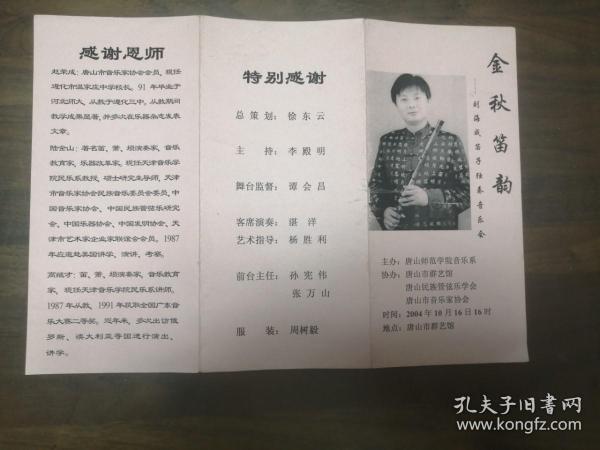 感谢恩师
赵荣成：唐山市音乐家协会会员，现任
遵化市温家庄中学校长。91年毕业于
河北师大，从教于遵化三中，从教期间
教学成果显著，并多次在乐器杂志发表
文章。
陆金山：著名笛、箫、埙演奏家、音乐
教育家、乐器改革家，现任天津音乐学
院民乐系教授、硕士研究生导师，天津
市音乐家协会民族音乐委员会委员，中
国音乐家协会、中国民族管弦乐研究
会、中国乐器协会、中国发明协会、天
津市艺术家企业家联谊会会员。1987
年应邀赴美国讲学、演讲、考察。
高继才：笛、箫、埙演奏家，音乐教育
家，现任天津音乐学院民乐系讲师，
1987年从教，1991年获联全国广东音
乐大赛二等奖。近年来，多次出访俄
罗斯、澳大利亚等国进行演出、
讲学。
特别感谢
总策划：徐东云
主持：李殿明
舞台监督：谭会昌
客席演奏：湛洋
艺术指导：杨胜利
前台主任：孙宪伟
张万山
服装：周树毅
金秋笛韵
刘海成笛子独奏音乐会
主办：唐山师范学院音乐系
协办：唐山市群艺馆
唐山民族管弦乐学会
唐山市音乐家协会
时间：2004年10月16日16时
地点：唐山市群艺馆
孔夫子旧书网
www.kongfz.com